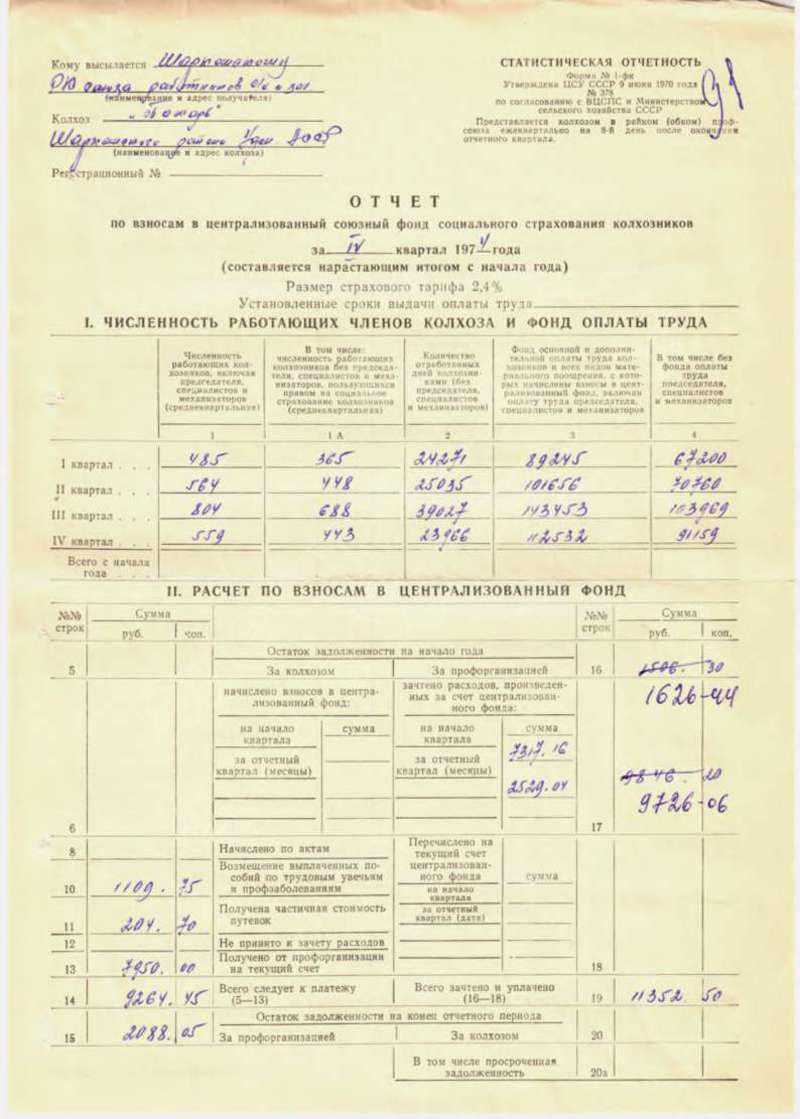 Кому высылается Шарканскому
РК союза работников с/х и заг.
(наименование и адрес получателя)
Колхоз
Шарканского района Удм. АССР
(наименование и адрес колхоза)
Регистрационный №
СТАТИСТИЧЕСКАЯ ОТЧЕТНОСТЬ
Форма № 1-фк
Утверждена ЦСУ СССР 9 июня 1970 года
№ 378
по согласованию с ВЦСПС и Министерством
сельского хозяйства СССР
Представляется колхозом в райком (обком) проф-
союза ежеквартально на 8-й день после окончания
отчетного квартала.
ОТЧЕТ
по взносам в централизованный союзный фонд социального страхования колхозников
за IV квартал 1974 года
(составляется нарастающим итогом с начала года)
Размер страхового тарифа 2,4%
Установленные сроки выдачи оплаты труда
I. ЧИСЛЕННОСТЬ РАБОТАЮЩИХ ЧЛЕНОВ КОЛХОЗА И ФОНД ОПЛАТЫ ТРУДА
Численность
работающих кол-
хозников, включая
председателя,
специалистов и
механизаторов
(среднеквартальная)
В том числе:
численность работающих
колхозников без председа-
теля, специалистов и меха-
низаторов, пользующихся
правом на социальное
страхование колхозников
(среднеквартальная)
Количество
отработанных
дней колхозни-
ками (без
председателя,
специалистов
и механизаторов)
Фонд основной и дополни-
тельной оплаты труда кол-
хозников и всех видов мате-
риального поощрения, с кото-
рых начислены взносы в цент-
рализованный фонд, включая
оплату труда председателя,
специалистов и механизаторов
В том числе без
фонда оплаты
труда
председателя,
специалистов
и механизаторов
1 1 А 2 3 4
I квартал . . . 485 365 24271 89245 67200
II квартал . . . 564 448 25035 101656 70760
III квартал . . . 804 688 39027 143453 103969
IV квартал . . . 559 443 23966 112532 91159
Всего с начала
года . . .
II. РАСЧЕТ ПО ВЗНОСАМ В ЦЕНТРАЛИЗОВАННЫЙ ФОНД
№№
строк
Сумма
руб. коп.
№№
строк
Сумма
руб. коп.
Остаток задолженности на начало года
5 За колхозом За профорганизацией 16 1506. 30
1626-44
начислено взносов в центра-
лизованный фонд:
на начало
квартала
сумма
за отчетный
квартал (месяцы)
6
зачтено расходов, произведен-
ных за счет централизован-
ного фонда:
на начало
квартала
сумма
7317.16
за отчетный
квартал (месяцы)
2529.04
9846. 20
9726-06
17
8 Начислено по актам
10 1109. 75 Возмещение выплаченных по-
собий по трудовым увечьям
и профзаболеваниям
11 204. 70 Получена частичная стоимость
путевок
12 Не принято к зачету расходов
13 7950. 00 Получено от профорганизации
на текущий счет
Перечислено на
текущий счет
централизован-
ного фонда
сумма
на начало
квартала
за отчетный
квартал (дата)
18
14 9264. 45 Всего следует к платежу
(5—13)
Всего зачтено и уплачено
(16—18)
19 11352 50
Остаток задолженности на конец отчетного периода
15 2088. 05 За профорганизацией За колхозом 20
В том числе просроченная
задолженность
20а